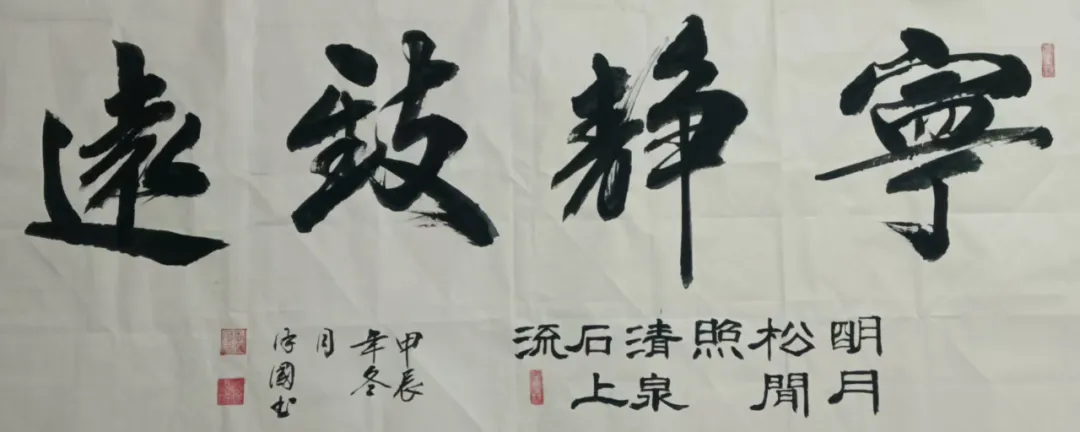 寧靜致遠
明月
松閒
照
清泉
石上
流
甲辰
年冬
月
國书